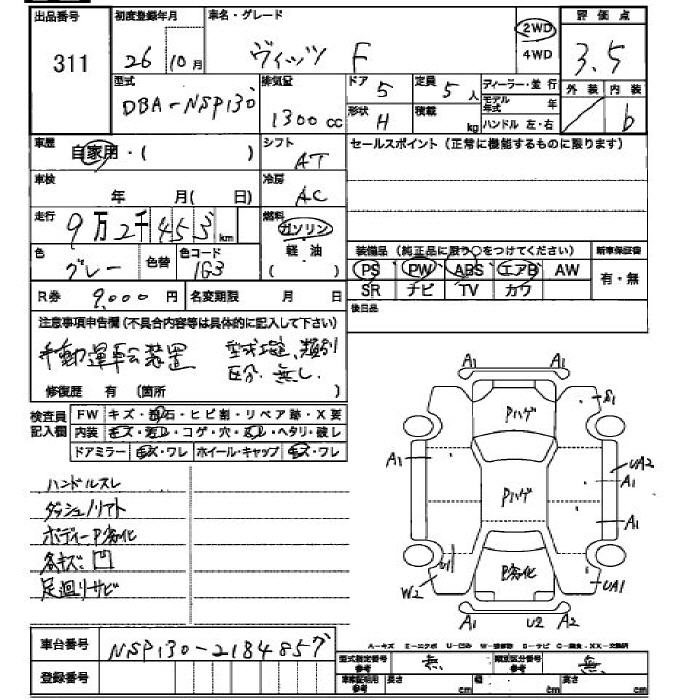 出品番号 初度登録年月 車名・グレード 評価点
311 26 10月 ヴィッツ F 2WD 4WD 3.5
型式 排気量 ドア 定員 ディーラー・並行 外装 内装
DBA-NSP130 1300cc 5 5人 モデル年式 年
形状 積載 H kg ハンドル 左・右 b
車歴 自家用・( ) シフト AT セールスポイント(正常に機能するものに限ります)
車検 年 月( 日) 冷房 AC
走行 9万2千453km 燃料 ガソリン 軽油 ( )
色 グレー 色替 色コード 1G3
装備品(純正品に限り○をつけてください) 新車保証書
PS PW ABS エアB AW 有・無
SR ナビ TV カワ
R券 9,000円 名変期限 月 日 後日品
注意事項申告欄(不具合内容等は具体的に記入して下さい)
手動運転装置 型式指定、類別
区分無し.
修復歴 有 (箇所 )
検査員記入欄 FW キズ・飛石・ヒビ割・リペア跡・X要
内装 キズ・汚レ・コゲ・穴・スレ・ヘタリ・破レ
ドアミラー キズ・ワレ ホイール・キャップ キズ・ワレ
ハンドルスレ
ダッシュソリフト
ボディーP劣化
各キズ凹
足廻りサビ
A1 A1
Pハゲ
A1 UA2
A1
Pハゲ
A1
P劣化
W2 UA1
A1 U2 A2
車台番号 NSP130-2184857
A-キズ E-エクボ U-凹み W-補修跡 S-サビ C-腐食・XX-交換済
登録番号 型式指定番号参考 無 類別区分番号参考 無
車庫証明用参考 長さ cm 幅 cm 高さ cm